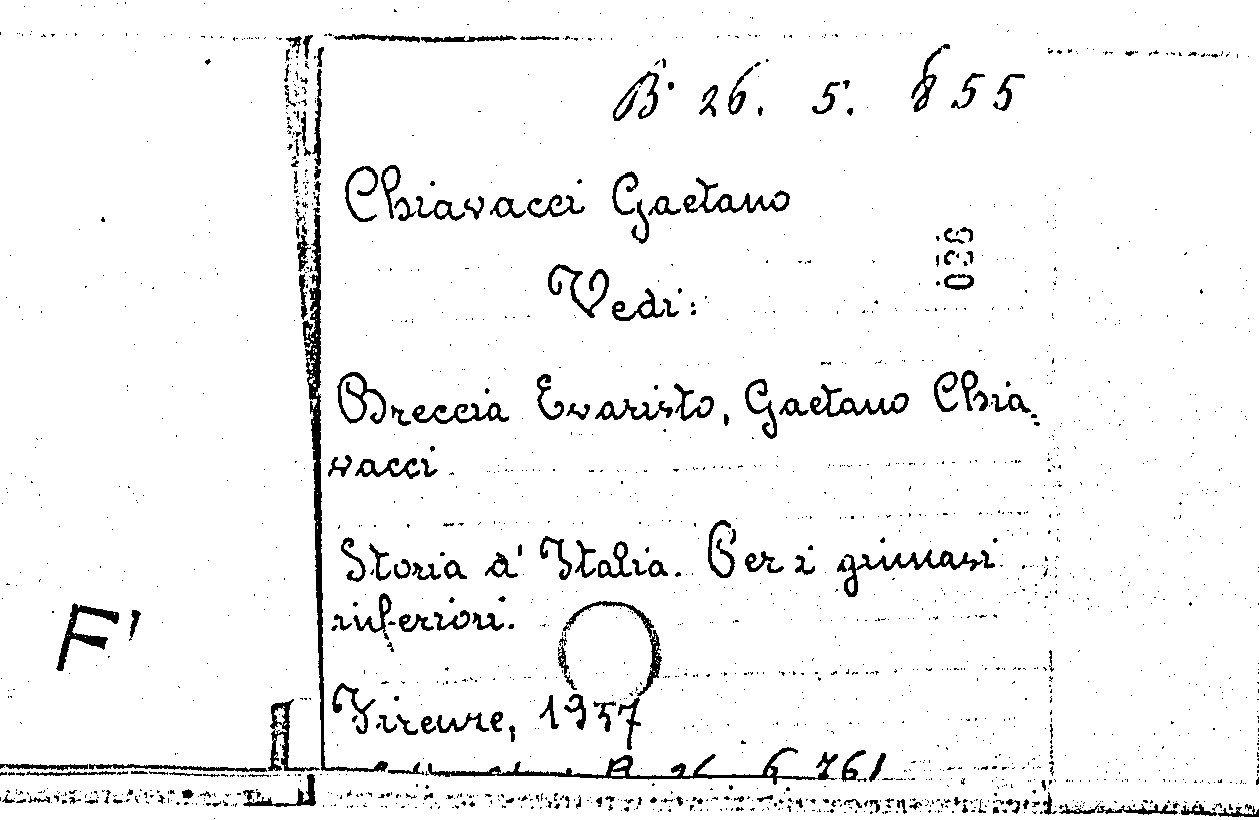 B. 26. 5. 655
Chiavacci Gaetano
036
Vedi:
Breccia Evaristo, Gaetano Chia-
vacci.
Storia d'Italia. Per i ginnasi
inferiori.
F'
Firenze, 1937
B 26 6 761